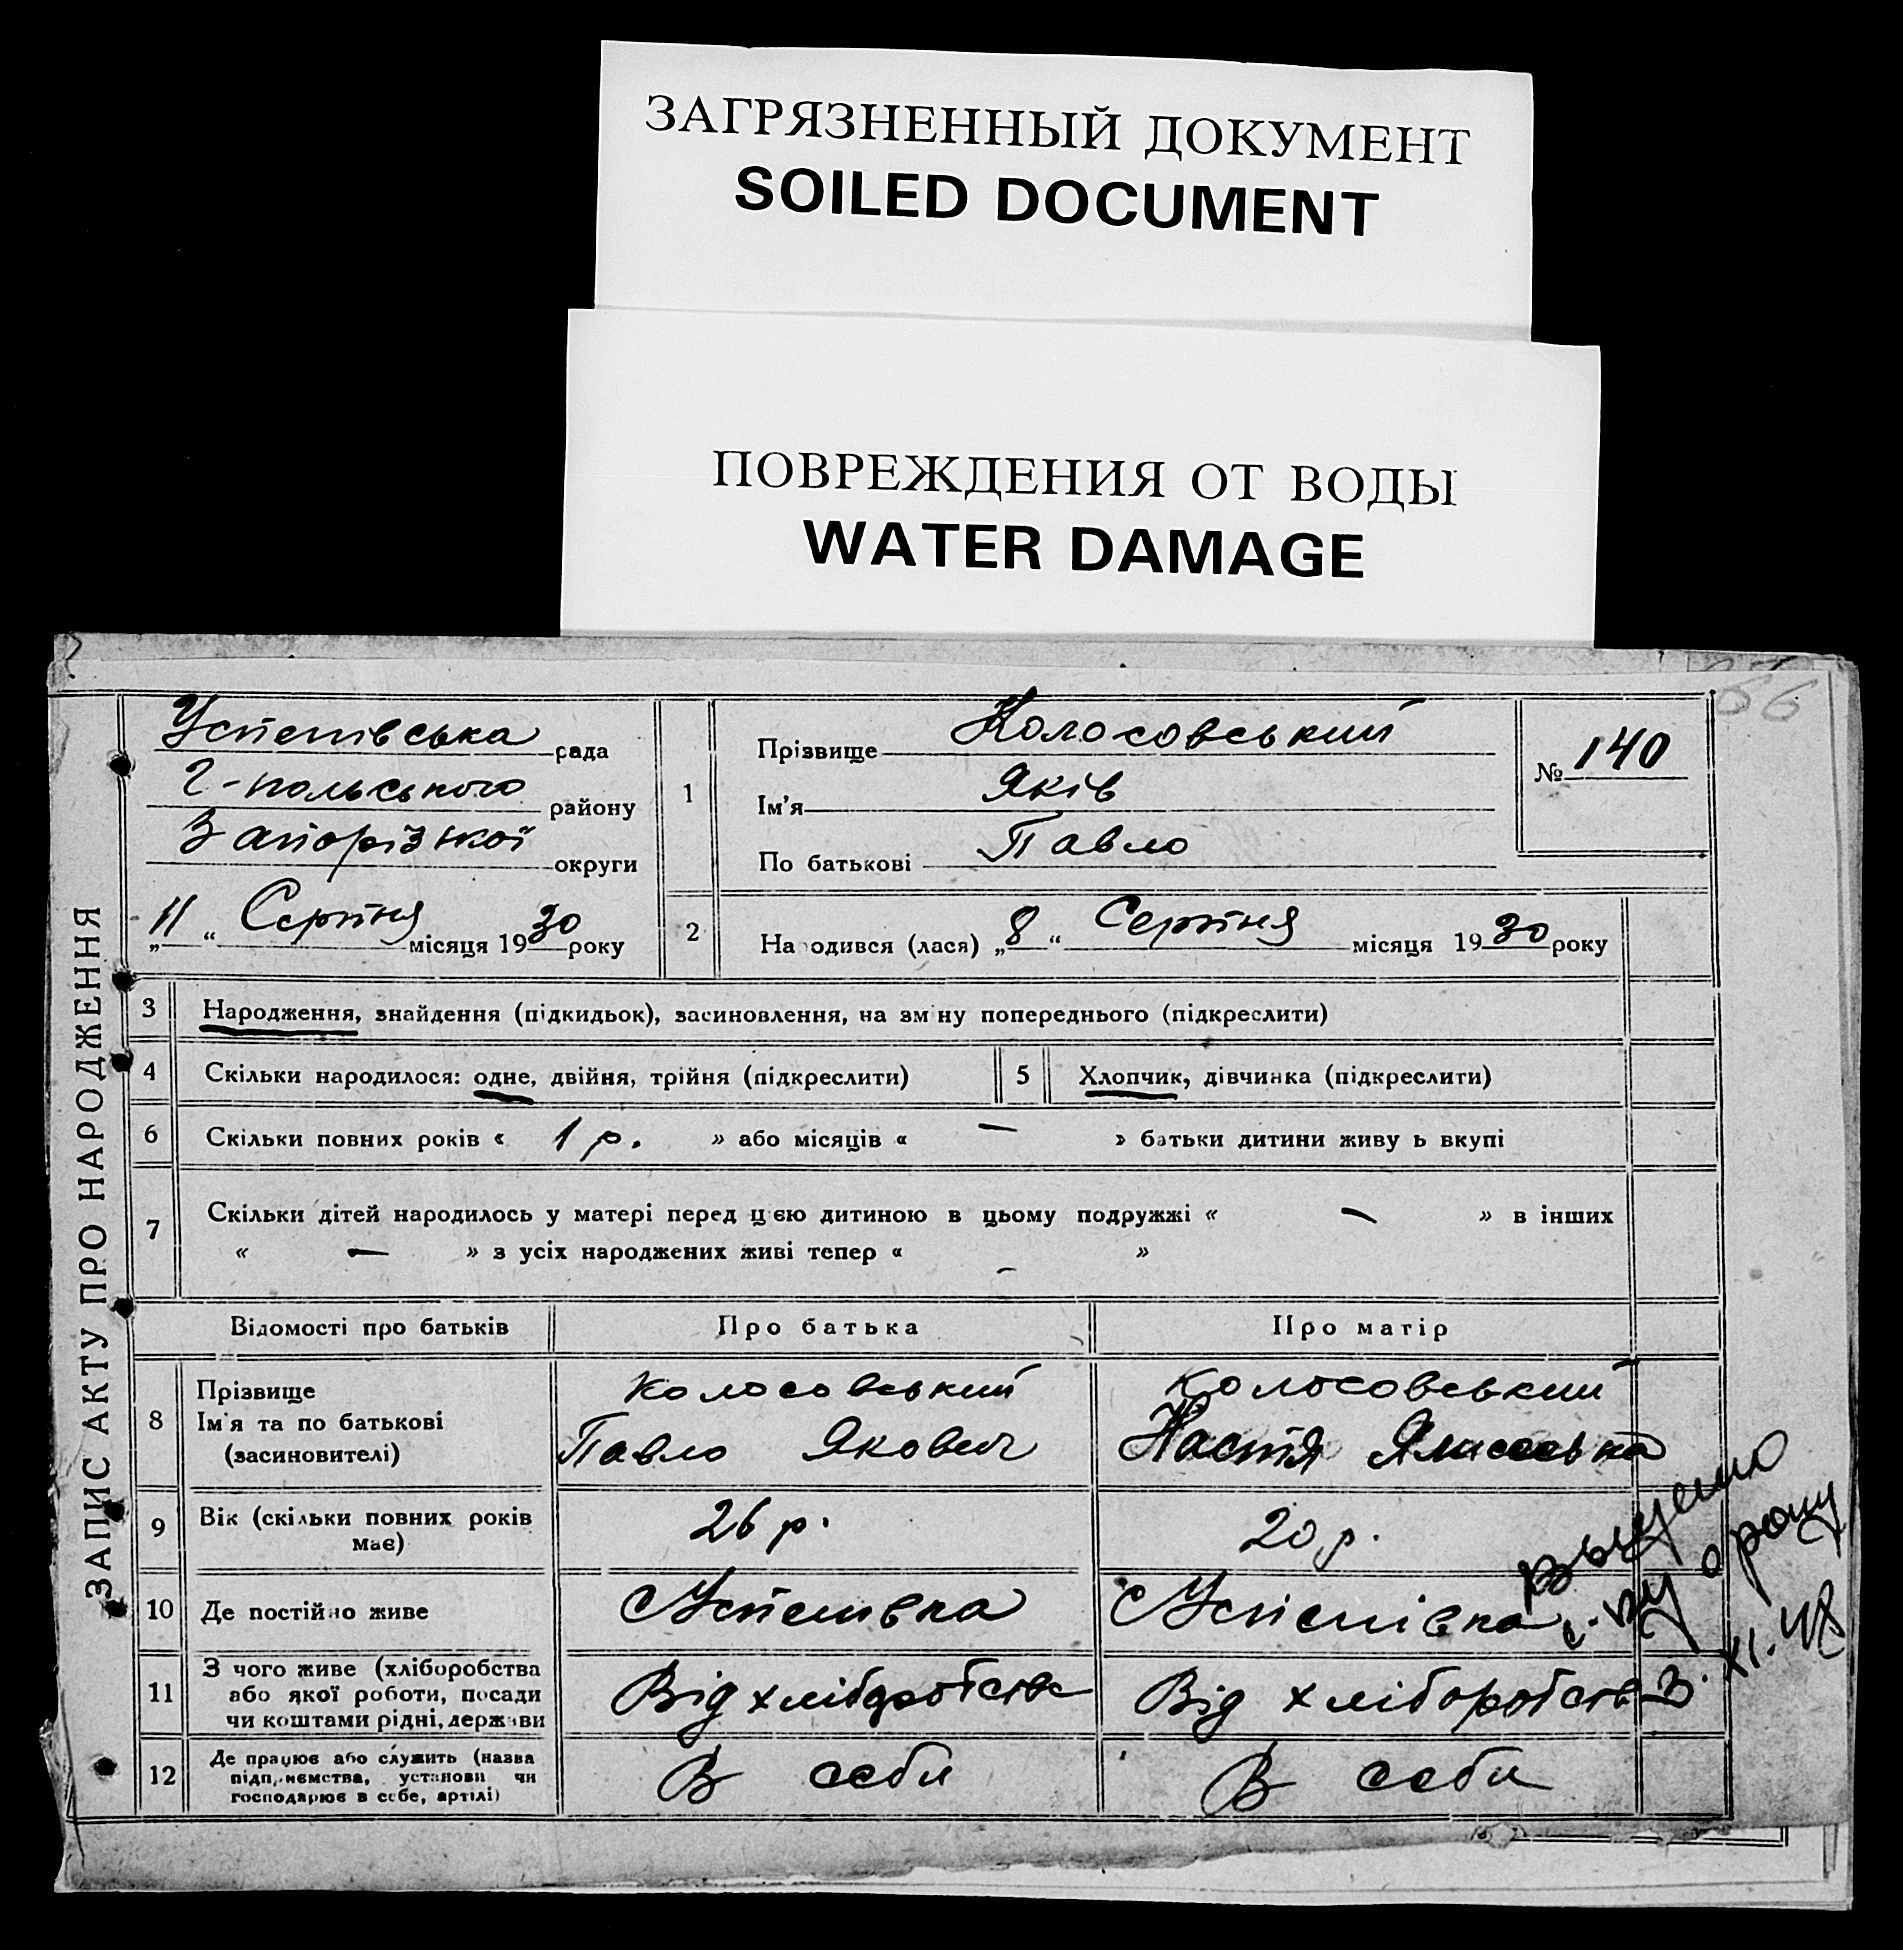 ЗАГРЯЗНЕННЫЙ ДОКУМЕНТ
SOILED DOCUMENT
ПОВРЕЖДЕНИЯ ОТ ВОДЫ
WATER DAMAGE
66
ЗАПИС АКТУ ПРО НАРОДЖЕННЯ
Успенівська рада
Г-польського району
Запорізької округи
„11“ Серпня місяця 1930 року
1
Прізвище Колосовський
Ім'я Яків
По батькові Павло
№ 140
2 Народився (лася) „8“ Серпня місяця 1930 року
3 Народження, знайдення (підкидьок), засиновлення, на зміну попереднього (підкреслити)
4 Скільки народилося: одне, двійня, трійня (підкреслити) 5 Хлопчик, дівчинка (підкреслити)
6 Скільки повних років « 1 р. » або місяців « — » батьки дитини живуть вкупі
7 Скільки дітей народилось у матері перед цією дитиною в цьому подружжі « — » в інших
« — » з усіх народжених живі тепер « — »
Відомості про батьків Про батька Про матір
8 Прізвище Колосовський Колосовський
Ім'я та по батькові Павло Якович Настя
(засиновителі)
9 Вік (скільки повних років має) 26 р. 20 р.
10 Де постійно живе С Успенівка С Успенівка
11 З чого живе (хліборобства
або якої роботи, посади Від хліборобства Від хліборобства
чи коштами рідні, держави
12 Де працює або служить (назва
підприємства, установи чи В себи В себи
господарює в себе, артілі)
3. XI. 48